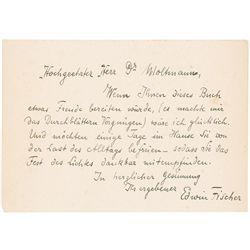 Hochgeehrter Herr Dr Woltmann,
Wenn Ihnen dieses Buch
etwas Freude bereiten würde, (es machte mir
das Durchblättern Vergnügen) wäre ich glücklich.
Und möchten einige Tage im Hause Sie von
der Last des Alltags befreien – sodass Sie das
Fest des Lichtes dankbar mitempfinden.
In herzlicher Gesinnung
Ihr ergebener Edwin Fischer